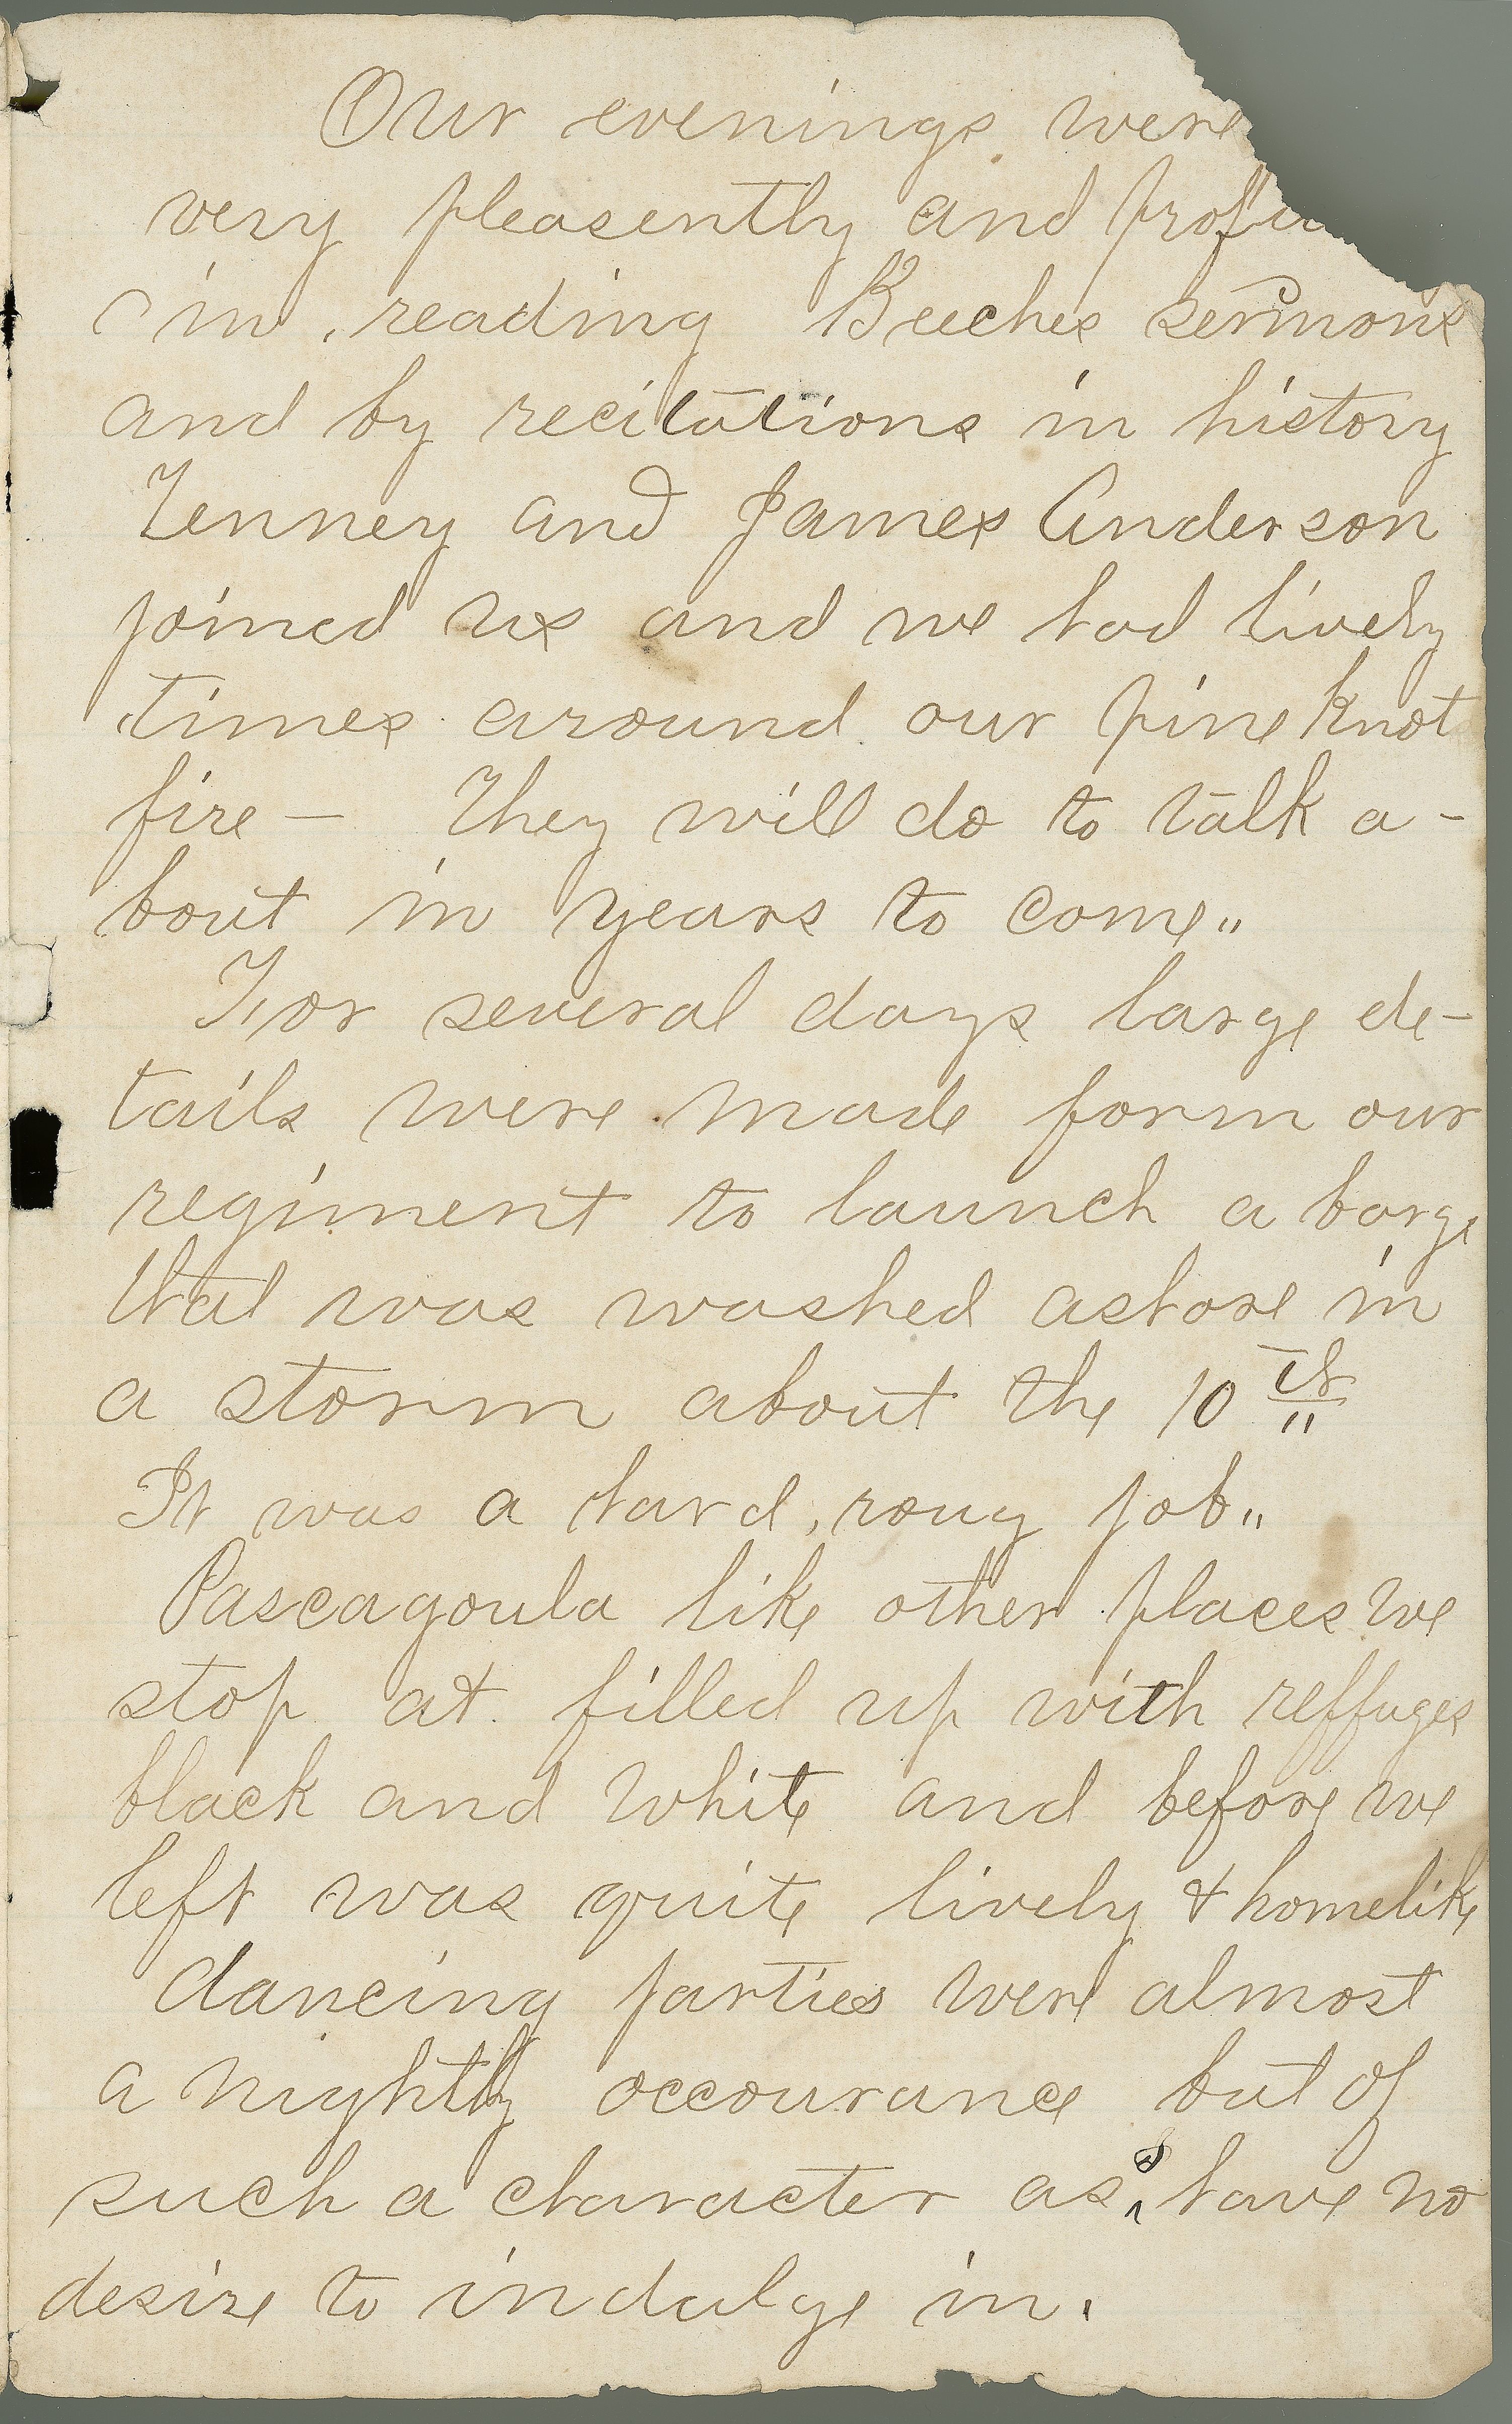 Our evenings were
very pleasently and profit
in reading Beeches sermons
and by recitations in history
Tenney and James Anderson
joined us and we had lively
times around our pine knot
fire — They will do to talk a-
bout in years to come"
For several days large de-
tails were made form our
regiment to launch a barge
that was washed ashore in
a storm about the 10th
It was a hard, roug job"
Pascagoula like other places we
stop at filled up with reffuges
black and white and before we
left was quite lively & homelike
dancing parties were almost
a nightly occourance but of
such a character as I have no
desire to indulge in.